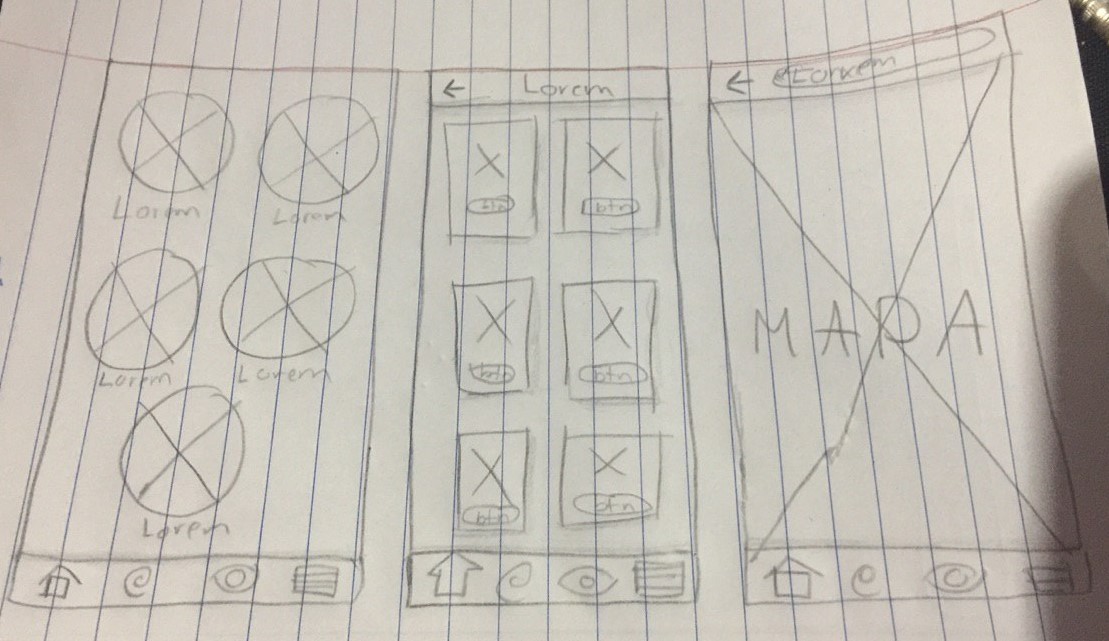 Lorem
Lorem
Lorem
Lorem
Lorem
Lorem
btn
btn
btn
btn
btn
btn
Lorem
MAPA